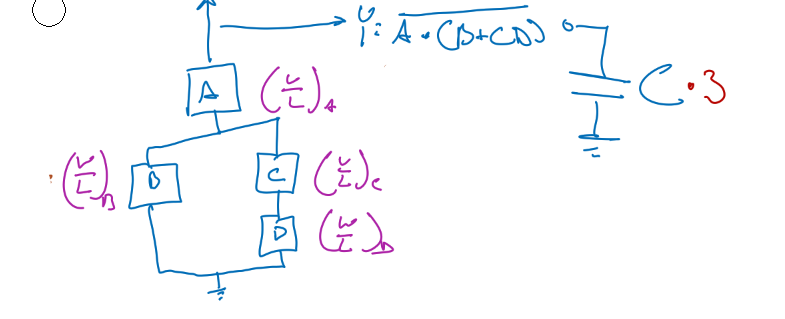 Y = \overline{A • (B+CD)}
A
(W/L)_A
C • 3
(W/L)_B
B
C
(W/L)_C
D
(W/L)_D